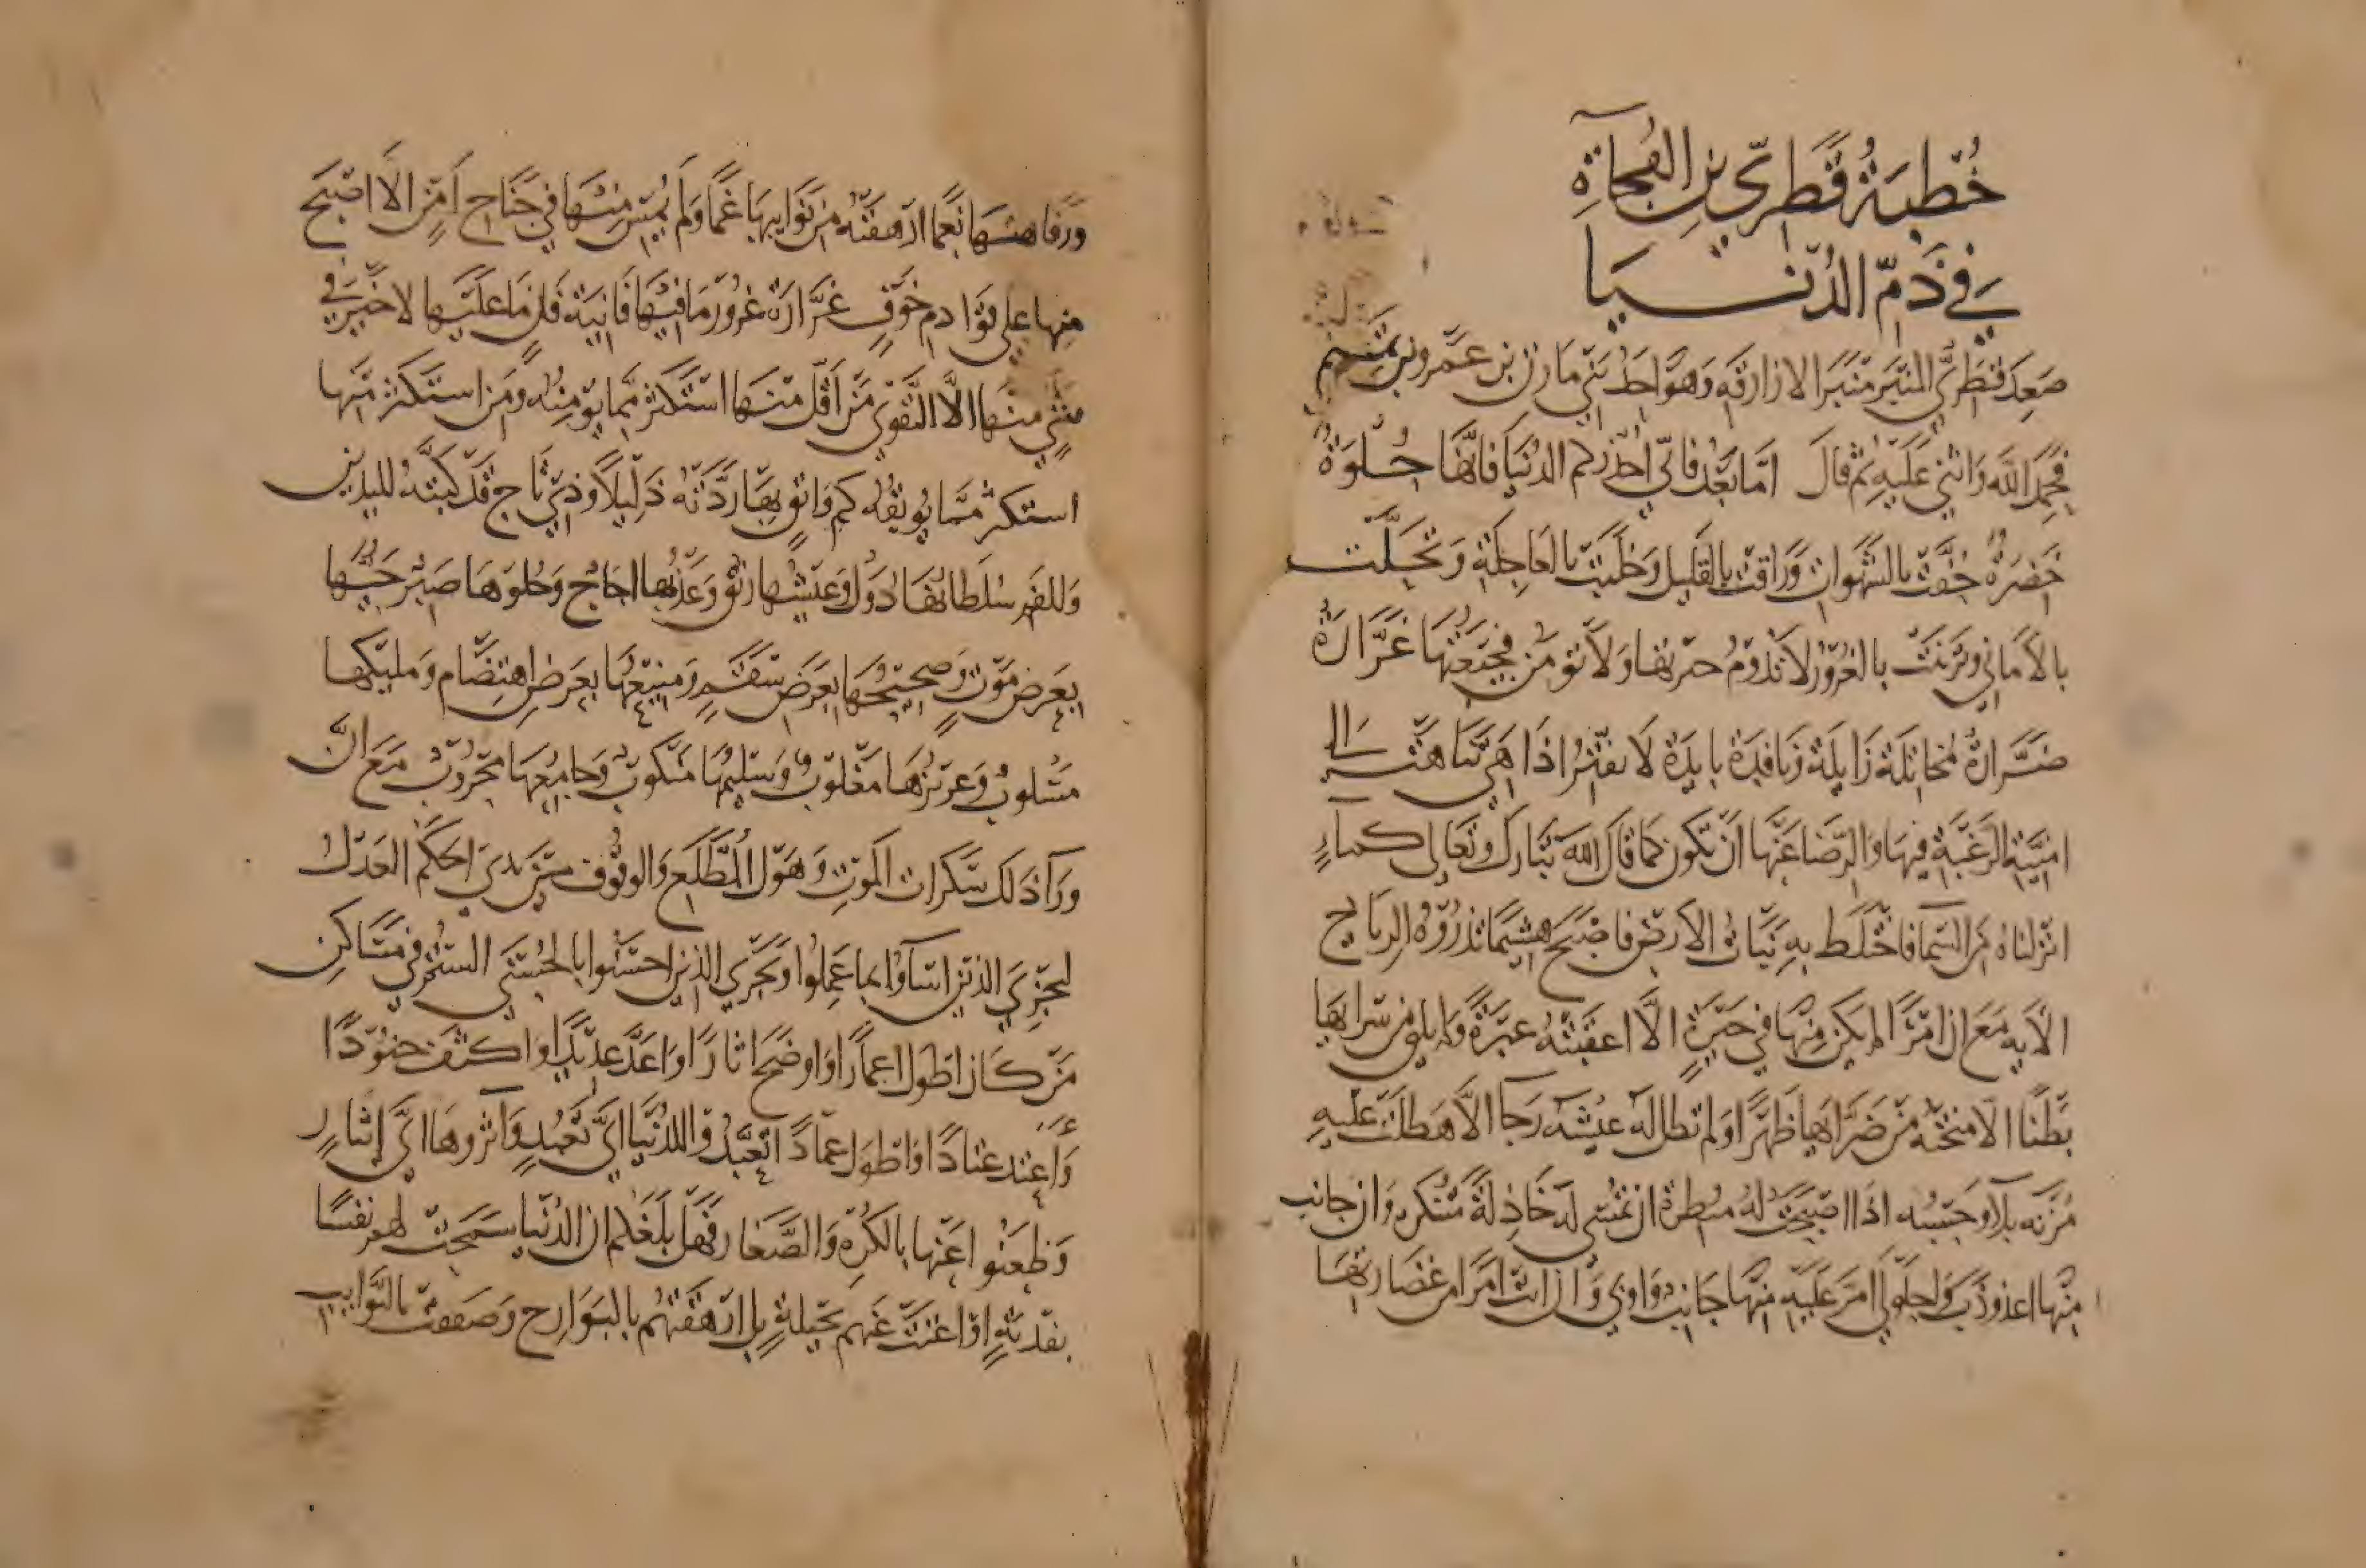 خُطبَةُ قَطَرِيّ بنِ الفُجاآةِ
في ذَمّ الدُنيَا
صَعِدَ قَطَرِيُّ المنبَر منبَرَ الازارقه وَهوَ احَدُ بَني مازن بن عَمرو بن تميم
فحَمِدَ اللهَ وَاثنى عَلَيهِ ثم قالَ امّا بَعدُ فانّي احَذّركم الدنيَا فانّهَا حُلوَةٌ
خَضرَةٌ حُفَّت بالشهَوات وَرَاقت بالقَليل وَحَلَيَت بالعَاجِلَةِ وَتحَلَّت
بالاَماني وتَزيَنَت بالغُرُور لاَ تَدُومُ حَبرتهَا وَلاَ تومَن فجيعَتُهَا غَرَّارَةٌ
ضَرَّارَةٌ خاتلَةٌ زَايلَةٌ نافِدَةٌ بايدَةٌ لاَ اذَا هيَ تنَاهَت الى
امنيَّةِ الرَغبَةِ فيهَا وَالرّضَا عَنهَا اَن تكون كما قالَ اللهَ تَبَارَكَ وَتعَالى كماءٍ
انزلناهُ منَ السَما فاختَلَطَ بهِ نَبَاتُ الاَرضِ فاصبَحَ هشيمًا تذرُوهُ الرياح
الاَيه مَعَ ان امرَأً لم يَكن منهَا في حَبرَةٍ الاَّ اعقَبَتهُ عبَرةً وَلم يلقَ من سَرايهَا
بَطنًا الاَّ منحَتهُ من ضَرَّاهَا ظَهرًا وَلم تطلَّهُ غيثَه رَجا الاَّ هَطَلَت عَلَيهِ
مُزنَه بلاَ وَ اذَا اصبَحَت لهُ ان تمسي لهُ خَاذلَةً متنكره وَان جانب
منها اعذوذَبَ وَاحلَولى امَرَّ عَلَيهِ منهَا جَانبٌ وَاوبى وَان اتت امرَأ من غضَارتهَا
وَرَفاهتهَا نعَمًا ارهقَتهُ من نَوايبهَا غَمًّا وَلم يُمسِ منهَا في جَنَاح اَمنٍ الاَّ اصبَحَ
منها على قوَادم خَوفٍ غرَّارَةٌ غُرورٌ مَا فيهَا فَانيَةٌ فَانٍ مَا عَلَيهَا لاَ خَيرَ في
شيءٍ منهَا الاَّ التَقوى مَن اَقَلَّ منهَا استَكثرَ ممَّا يومنُهُ وَمَن استَكثَرَ منها
استكثرَ ممَّا يوبقُهُ كم وَاثقٍ بهَا رَدَّتهُ ذَليلاً وَذي تَاجٍ قَد كبَتهُ لليدَين
وَللفَم سُلطَانُهَا دُوَلٌ وَعَيشُهَا رَنقٌ وَعَذبُهَا اجَاجٌ وَحُلوهَا صَبرٌ حَيُّها
بعَرض مَوتٍ وَصَحيحُهَا بعَرَض سَقَمٍ وَمَنيعُهَا بعَرَضِ اهتضَامٍ وَمَليكُها
مَسلوبٌ وَعَزيزُهَا مَغلوبٌ وَسَليمُهَا مَنكوبٌ وَجَامِعُهَا مَحروبٌ مَعَ اَنَّ
وَرَآ ذَلكَ سَكرَات المَوتِ وَهَول المُطَّلَع وَالوقُوف بَين يَدي الحَكَم العَدل
ليَجزي الذين اسَآوا بما عَمِلُوا وَيَجزي الذين احسَنُوا بالحُسنَى السُتم في مَسَاكن
مَن كَان اطوَل اعمارًا وَاوضَحَ اثَارًا وَاعَدَّ عَديدًا وَاكثَفَ جنُودًا
وَاعتدَ عتادًا وَاطوَل عمادًا تَعبَّدُوا للدُنيَا ايَّ تَعَبُّدٍ وَآثروهَا ايَّ إيثارٍ
وَظعَنُوا عَنها بالكُرهِ وَالصَّغَار فَهَل بَلَغَكم ان الدُنيَا سَمَحَت لهم نفسًا
بفديَةٍ او اغنَت عَنهم بحيلةٍ بل ارهَقَتهُم بالبَوَارح وَصَعَفت بالنَوايب